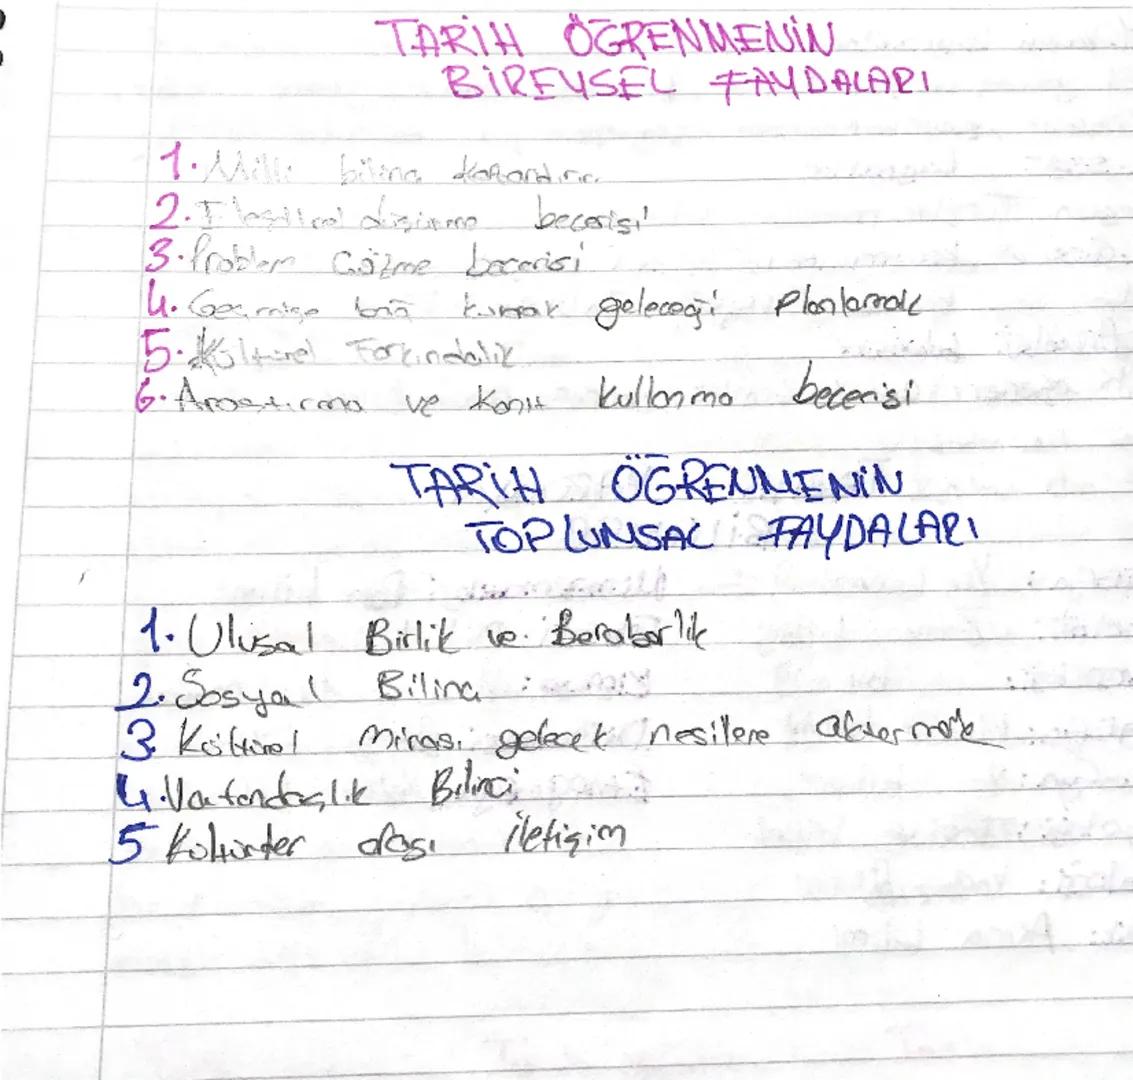 TARİH ÖĞRENMENİN
BİREYSEL FAYDALARI
1. Milli bilinç kazandırır.
2. Eleştirel düşünme becerisi
3. Problem Çözme becerisi
4. Geçmişe bağ kurarak geleceği planlamak
5. Kültürel Farkındalık
6. Araştırma ve Kanıt kullanma becerisi
TARİH ÖĞRENMENİN
TOPLUMSAL FAYDALARI
1. Ulusal Birlik ve Beraberlik
2. Sosyal Bilinç
3 Kültürel Mirası gelecek nesilere aktarmak
4. Vatandaşlık Bilinci
5 Kültürler arası iletişim